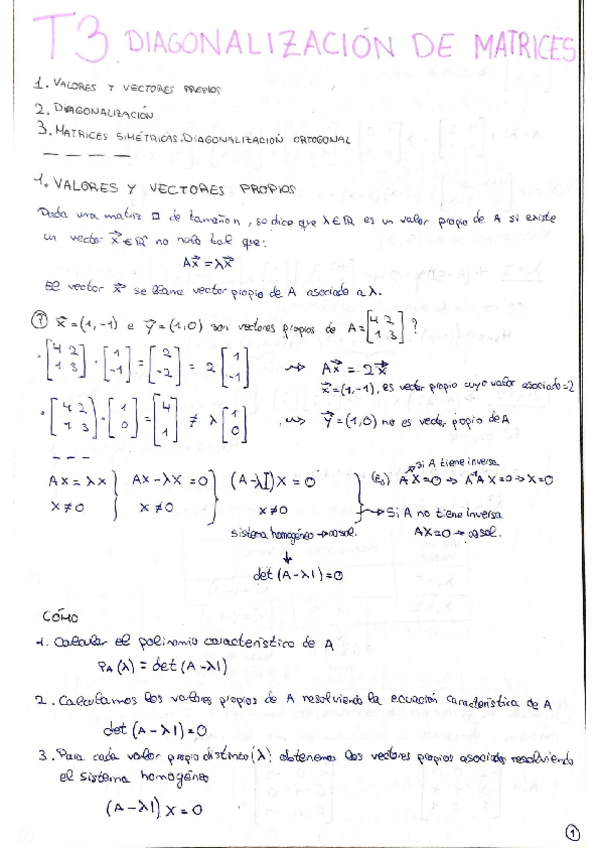 T3 DIAGONALIZACIÓN DE MATRICES
1. VALORES Y VECTORES PROPIOS
2. DIAGONALIZACIÓN
3. MATRICES SIMÉTRICAS. DIAGONALIZACIÓN ORTOGONAL
1. VALORES Y VECTORES PROPIOS
Dada una matriz □ de tamaño n, se dice que λ∈ℝ es un valor propio de A si existe
un vector x⃗∈ℝⁿ no nulo tal que:
Ax⃗ = λx⃗
El vector x⃗ se llama vector propio de A asociado a λ.
x⃗=(1,-1) e y⃗=(1,0) son vectores propios de A=[4 2; 1 3] ?
· [4 2; 1 3] · [1; -1] = [2; -2] = 2 [1; -1] ⇝ Ax⃗ = 2x⃗
x⃗=(1,-1), es vector propio cuyo valor asociado=2
· [4 2; 1 3] · [1; 0] = [4; 1] ≠ λ [1; 0] ⇝ y⃗=(1,0) no es vector propio de A
AX=λX } AX-λX=0 } (A-λI)X=0 } AX=0 → A⁻¹AX=0→X=0
Si A tiene inversa
X≠0 X≠0 X≠0 → Si A no tiene inversa
sistema homogéneo →∞ sol. AX=0 → ∞ sol.
↓
det (A-λI)=0
CÓMO
1. Calcular el polinomio característico de A
P_A (λ) = det (A-λI)
2. Calculamos los valores propios de A resolviendo la ecuación característica de A
det (A-λI)=0
3. Para cada valor propio distinto (λ) obtenemos los vectores propios asociados resolviendo
el sistema homogéneo
(A-λI) X = 0
1